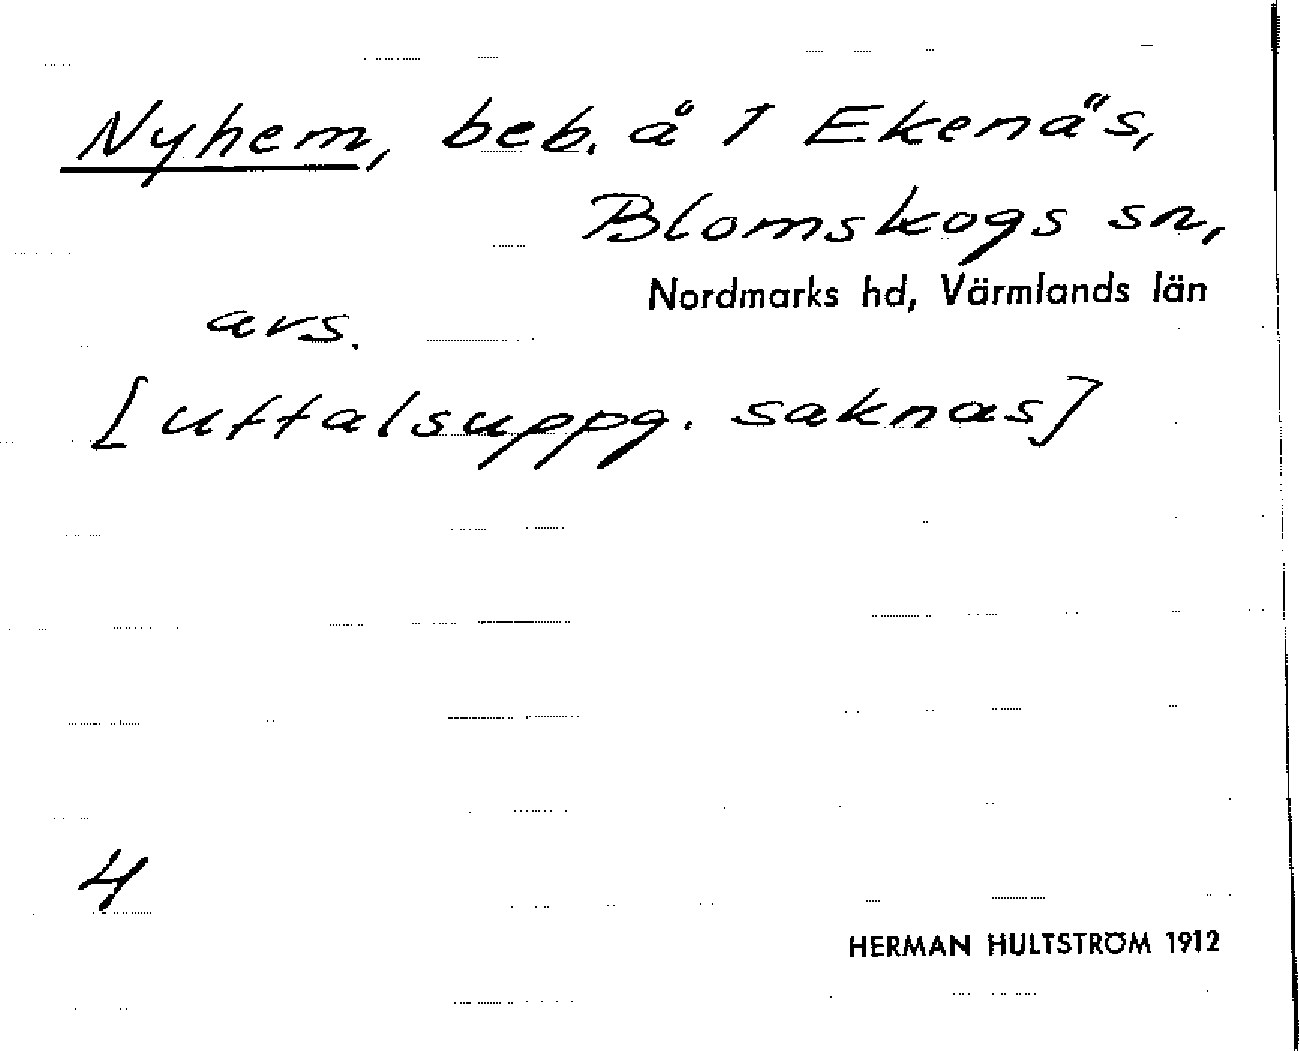 Nyhem, beb. å 1 Ekenäs,
Blomskogs sn,
Nordmarks hd, Värmlands län
avs.
[uttalsuppg. saknas]
4
HERMAN HULTSTRÖM 1912